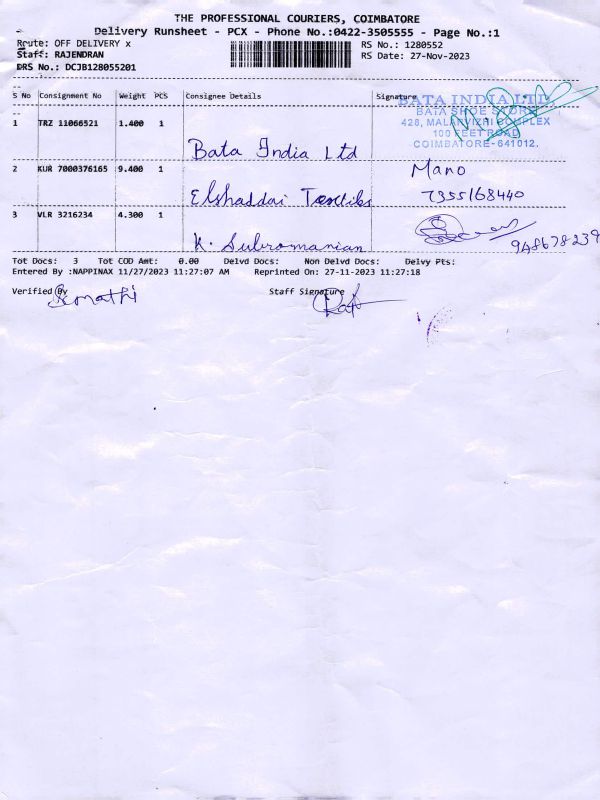 THE PROFESSIONAL COURIERS, COIMBATORE
Delivery Runsheet - PCX - Phone No.:0422-3505555 - Page No.:1
Route: OFF DELIVERY x
RS No.: 1280552
Staff: RAJENDRAN
RS Date: 27-Nov-2023
DRS No.: DCJB128055201
S No Consignment No Weight PCS Consignee Details Signature
BATA INDIA LTD.
BATA SHOE STORE
1 TRZ 11066521 1.400 1
428, MALARVIZHI COMPLEX
100 FEET ROAD
COIMBATORE-641012.
Bata India Ltd
2 KUR 7000376165 9.400 1
Mano
Elshaddai Textiles
7355168440
3 VLR 3216234 4.300 1
K. Subromanian
948678239
Tot Docs: 3 Tot COD Amt: 0.00 Delvd Docs: Non Delvd Docs: Delvy Pts:
Entered By :NAPPINAX 11/27/2023 11:27:07 AM Reprinted On: 27-11-2023 11:27:18
Verified By
Staff Signature